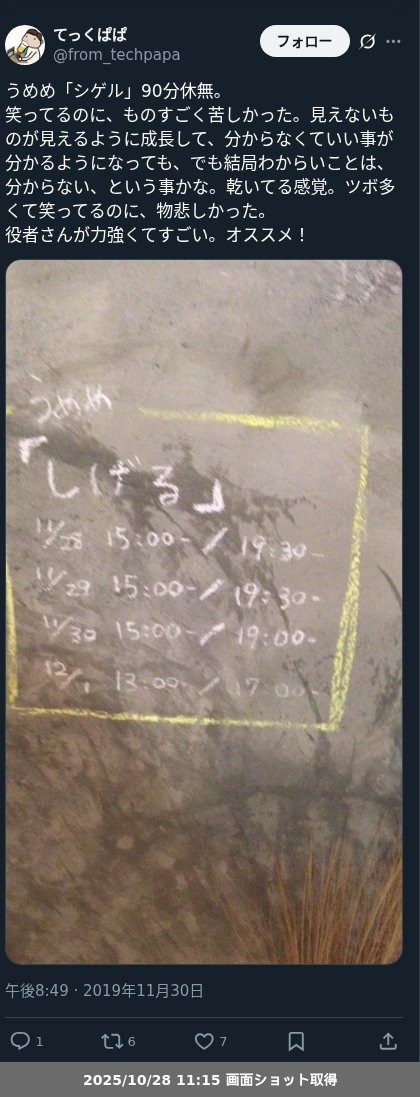 てっくぱぱ
フォロー
@from_techpapa
うめめ「シゲル」90分休無。
笑ってるのに、ものすごく苦しかった。見えないも
のが見えるように成長して、分からなくていい事が
分かるようになっても、でも結局わからいことは、
分からない、という事かな。乾いてる感覚。ツボ多
くて笑ってるのに、物悲しかった。
役者さんが力強くてすごい。オススメ！
うめめ
「しげる」
11/28 15:00- / 19:30-
11/29 15:00- / 19:30-
11/30 15:00- / 19:00-
12/1 13:00- / 17:00-
午後8:49 · 2019年11月30日
1 6 7
2025/10/28 11:15 画面ショット取得